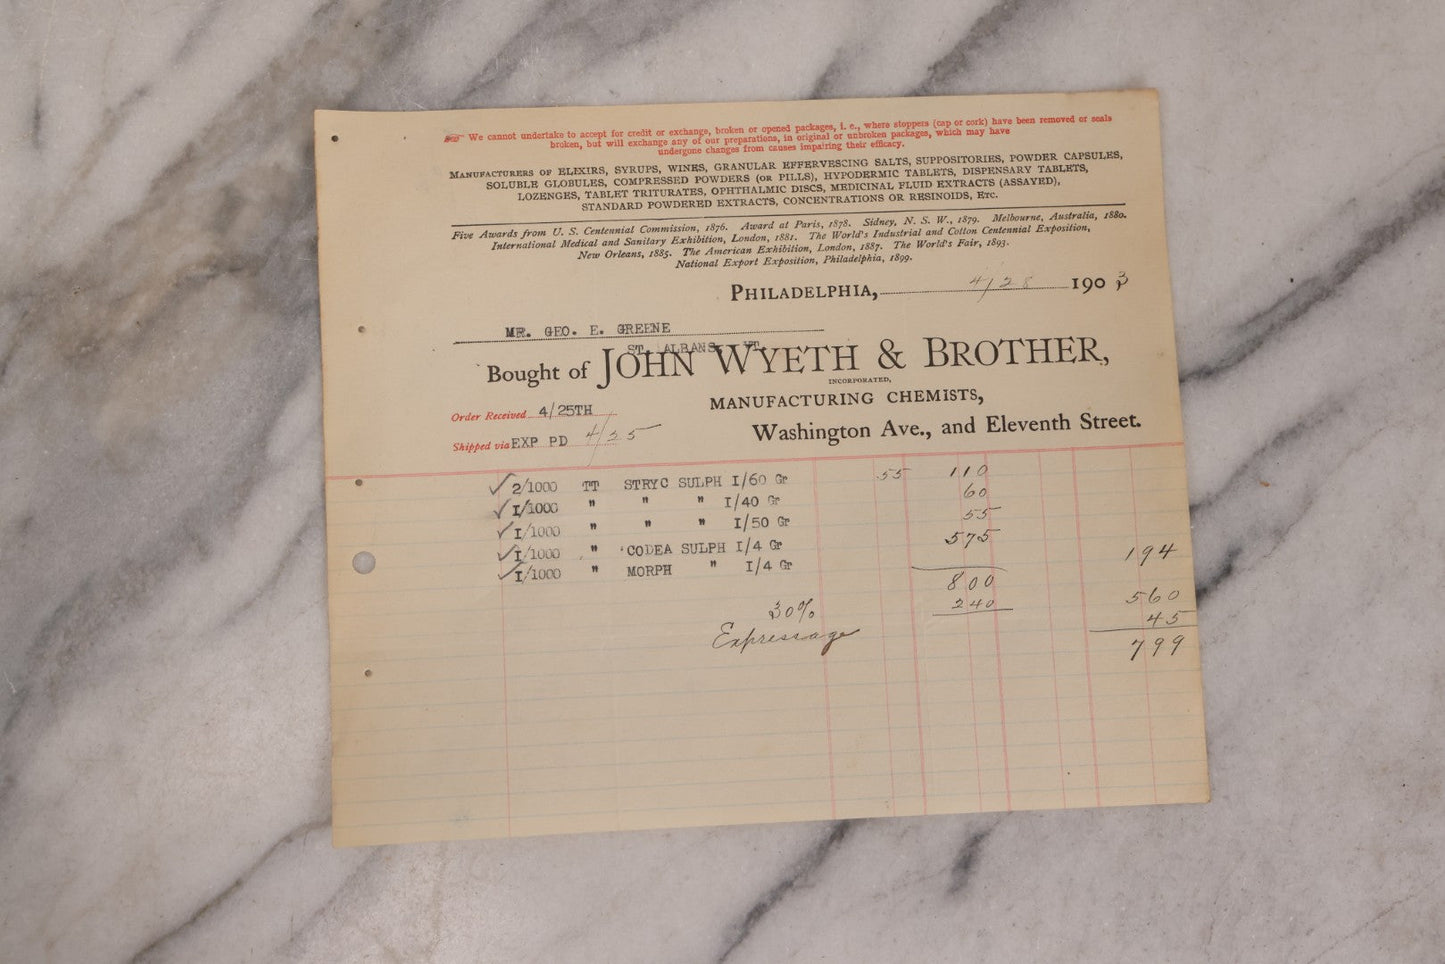 ☞ We cannot undertake to accept for credit or exchange, broken or opened packages, i. e., where stoppers (cap or cork) have been removed or seals
broken, but will exchange any of our preparations, in original or unbroken packages, which may have
undergone changes from causes impairing their efficacy.
MANUFACTURERS OF ELIXIRS, SYRUPS, WINES, GRANULAR EFFERVESCING SALTS, SUPPOSITORIES, POWDER CAPSULES,
SOLUBLE GLOBULES, COMPRESSED POWDERS (OR PILLS), HYPODERMIC TABLETS, DISPENSARY TABLETS,
LOZENGES, TABLET TRITURATES, OPHTHALMIC DISCS, MEDICINAL FLUID EXTRACTS (ASSAYED),
STANDARD POWDERED EXTRACTS, CONCENTRATIONS OR RESINOIDS, ETC.
Five Awards from U. S. Centennial Commission, 1876. Award at Paris, 1878. Sidney, N. S. W., 1879. Melbourne, Australia, 1880.
International Medical and Sanitary Exhibition, London, 1881. The World's Industrial and Cotton Centennial Exposition,
New Orleans, 1885. The American Exhibition, London, 1887. The World's Fair, 1893.
National Export Exposition, Philadelphia, 1899.
PHILADELPHIA, 4/28 1903
MR. GEO. E. GREENE
ST. ALBANS VT.
Bought of JOHN WYETH & BROTHER,
INCORPORATED,
MANUFACTURING CHEMISTS,
Order Received 4/25TH
Washington Ave., and Eleventh Street.
Shipped via EXP PD 4/25
✓ 2/1000 TT STRYC SULPH I/60 Gr 55 110
✓ I/1000 " " " I/40 Gr 60
✓ I/1000 " " " I/50 Gr 55
✓ I/1000 " CODEA SULPH I/4 Gr 575
✓ I/1000 " MORPH " I/4 Gr 194
800
30% 240 560
Expressage 45
799